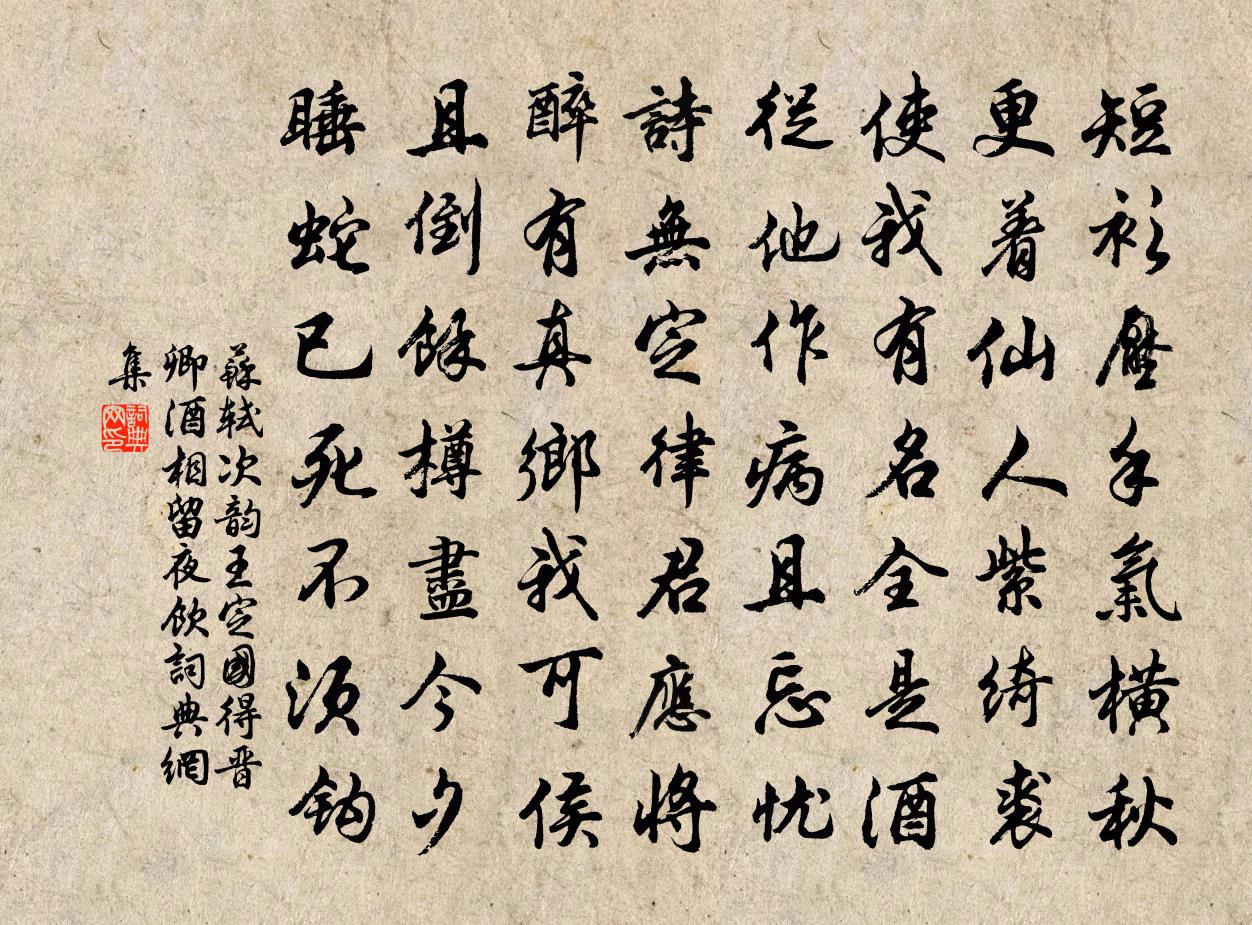 短衫壓手氣橫秋
更着仙人紫綺裘
使我有名全是酒
從他作病且忘忧
詩無定律君應將
醉有真鄉我可侯
且倒餘樽盡今夕
睡蛇已死不須鈎
蘇軾次韵王定國得晋
卿酒相留夜飲詞典網
集
詞典
网印